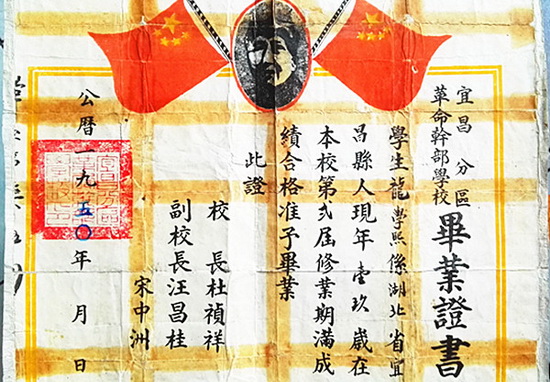 宜昌分區
革命幹部學校
畢業證書
學生龍學熙係湖北省宜
昌縣人現年壹玖歲在
本校第弍屆修業期滿成
績合格准予畢業
此證
校長杜禎祥
副校長汪昌桂
宋中洲
公曆一九五〇年 月 日